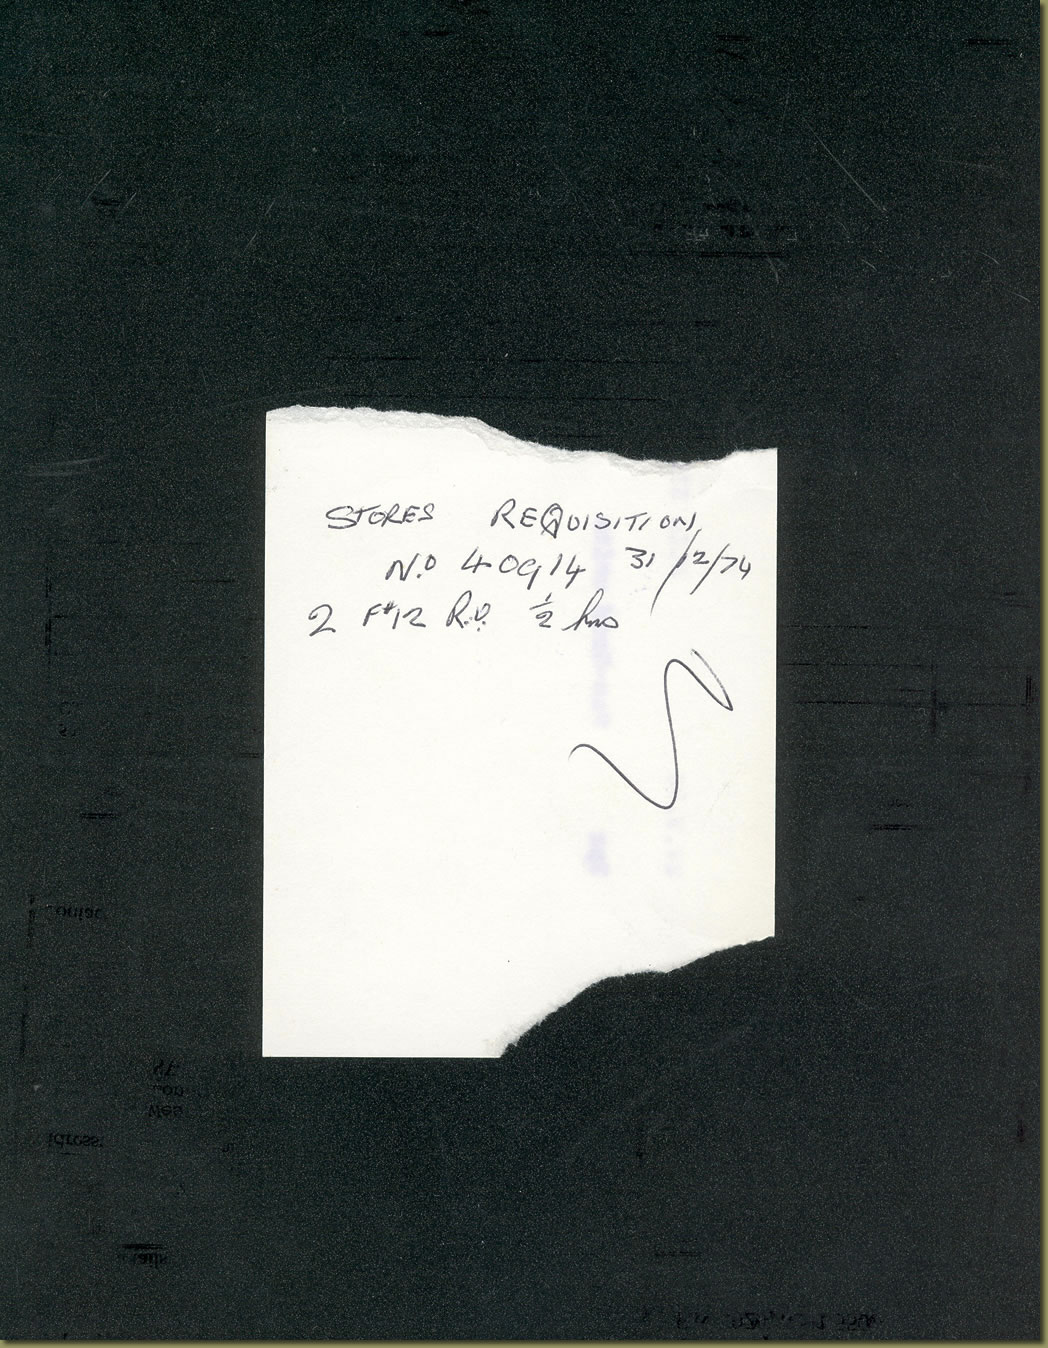 STORES REQUISITION
N.o 40914 31/12/74
2 F#12 R.D. ½ hrs